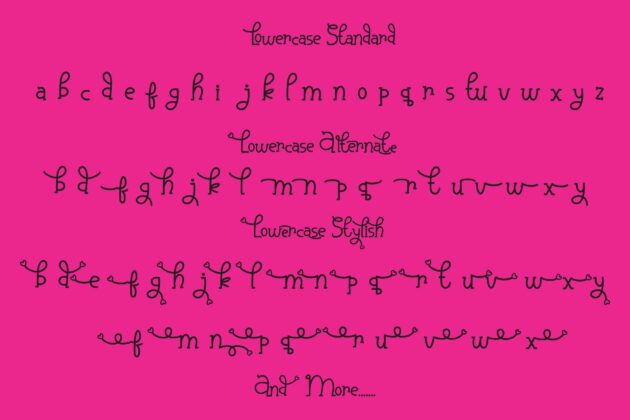 Lowercase Standard
a b c d e f g h i j k l m n o p q r s t u v w x y z
Lowercase Alternate
b d f g h j k l m n p q r t u v w x y
Lowercase Stylish
b d e f g h j k l m n p q r t u v w x y
e f m n e p q e r u v w x
And More......